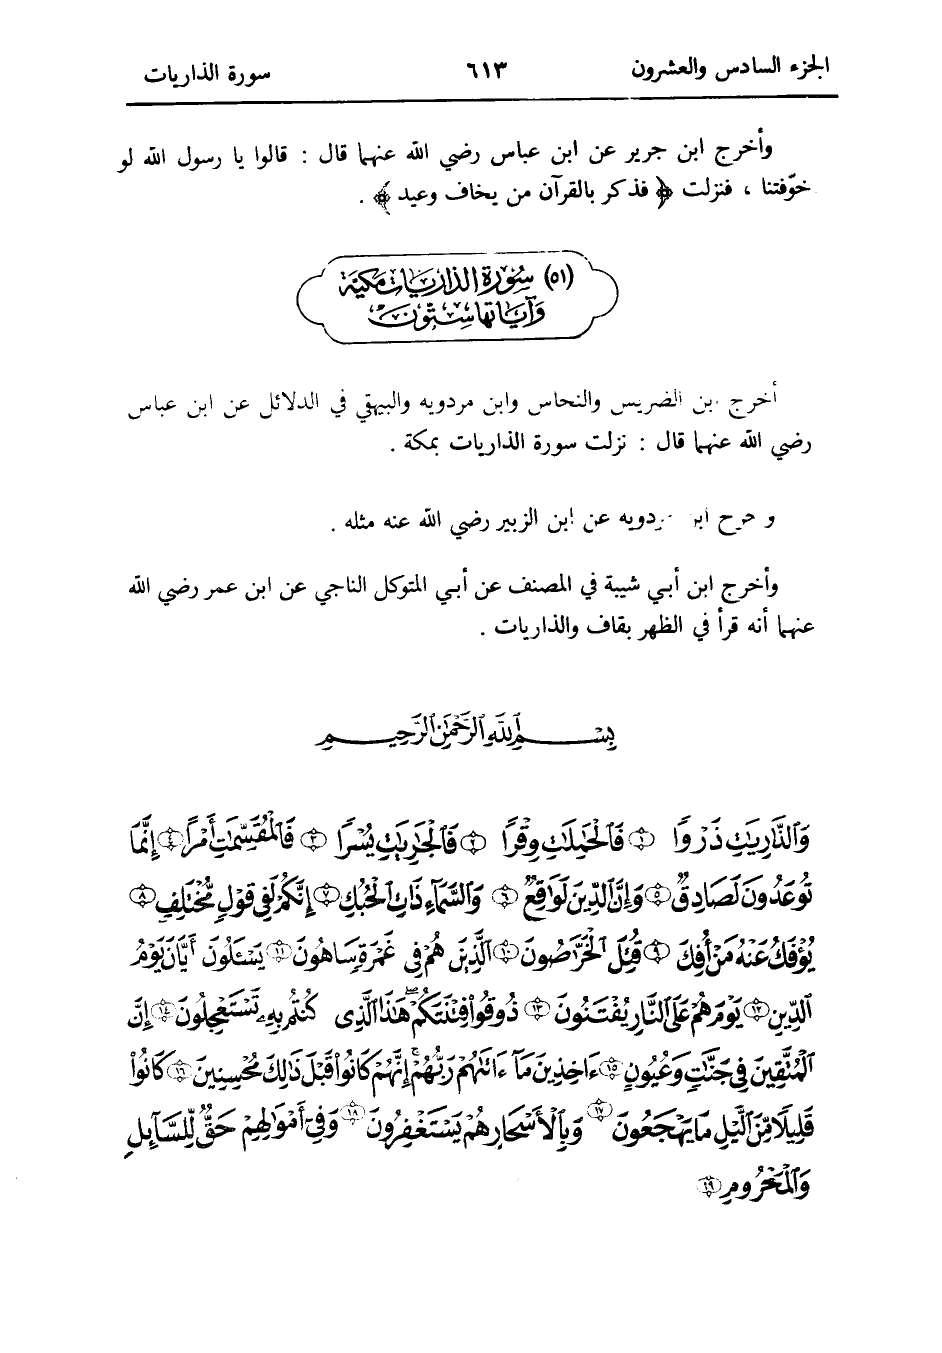 الجزء السادس والعشرون ٦١٣ سورة الذاريات
وأخرج ابن جرير عن ابن عباس رضي الله عنهما قال : قالوا يا رسول الله لو
خوّفتنا ، فنزلت ﴿ فذكر بالقرآن من يخاف وعيد ﴾ .
(٥١) سُورَة الذاريَات مَكيَّة
وَآيَاتهَا سِتُّونَ
أخرج بن الضريس والنحاس وابن مردويه والبيهقي في الدلائل عن ابن عباس
رضي الله عنهما قال : نزلت سورة الذاريات بمكة .
و ابن ردويه عن ابن الزبير رضي الله عنه مثله .
وأخرج ابن أبي شيبة في المصنف عن أبي المتوكل الناجي عن ابن عمر رضي الله
عنهما أنه قرأ في الظهر بقاف والذاريات .
بِسْمِ اللَّهِ الرَّحْمَٰنِ الرَّحِيمِ
وَالذَّارِيَاتِ ذَرْوًا ﴿١﴾ فَالْحَامِلَاتِ وِقْرًا ﴿٢﴾ فَالْجَارِيَاتِ يُسْرًا ﴿٣﴾ فَالْمُقَسِّمَاتِ أَمْرًا ﴿٤﴾ إِنَّمَا
تُوعَدُونَ لَصَادِقٌ ﴿٥﴾ وَإِنَّ الدِّينَ لَوَاقِعٌ ﴿٦﴾ وَالسَّمَاءِ ذَاتِ الْحُبُكِ ﴿٧﴾ إِنَّكُمْ لَفِي قَوْلٍ مُّخْتَلِفٍ ﴿٨﴾
يُؤْفَكُ عَنْهُ مَنْ أُفِكَ ﴿٩﴾ قُتِلَ الْخَرَّاصُونَ ﴿١٠﴾ الَّذِينَ هُمْ فِي غَمْرَةٍ سَاهُونَ ﴿١١﴾ يَسْـَٔلُونَ أَيَّانَ يَوْمُ
الدِّينِ ﴿١٢﴾ يَوْمَ هُمْ عَلَى النَّارِ يُفْتَنُونَ ﴿١٣﴾ ذُوقُوا فِتْنَتَكُمْ هَٰذَا الَّذِي كُنتُم بِهِ تَسْتَعْجِلُونَ ﴿١٤﴾ إِنَّ
الْمُتَّقِينَ فِي جَنَّاتٍ وَعُيُونٍ ﴿١٥﴾ ءَاخِذِينَ مَا ءَاتَاهُمْ رَبُّهُمْ إِنَّهُمْ كَانُوا قَبْلَ ذَٰلِكَ مُحْسِنِينَ ﴿١٦﴾ كَانُوا
قَلِيلًا مِّنَ الَّيْلِ مَا يَهْجَعُونَ ﴿١٧﴾ وَبِالْأَسْحَارِ هُمْ يَسْتَغْفِرُونَ ﴿١٨﴾ وَفِي أَمْوَالِهِمْ حَقٌّ لِّلسَّائِلِ
وَالْمَحْرُومِ ﴿١٩﴾